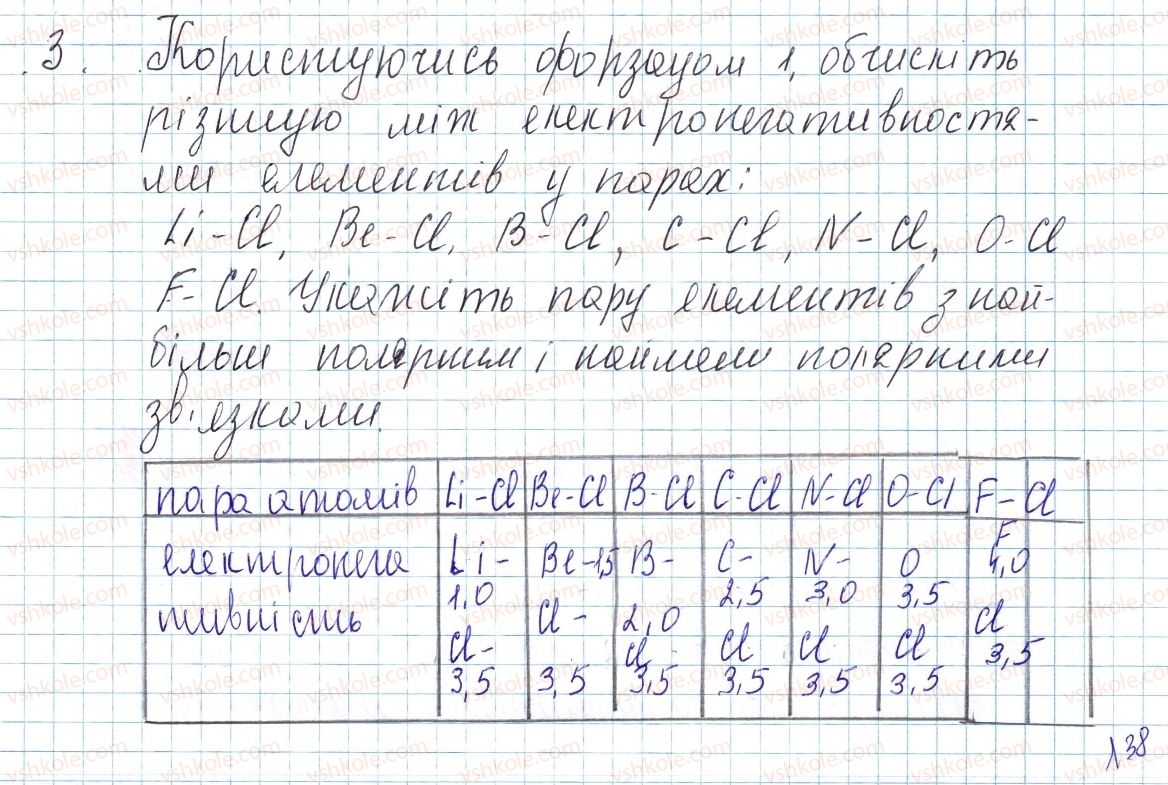 3. Користуючись форзацом 1, обчисліть
різницю між електронегативностя-
ми елементів у парах:
Li-Cl, Be-Cl, B-Cl, C-Cl, N-Cl, O-Cl
F-Cl. Укажіть пару елементів з най-
більш полярним і найменш полярними
зв'язками.
пара атомів Li-Cl Be-Cl B-Cl C-Cl N-Cl O-Cl F-Cl
електронега Li- Be-1,5 B- C- N- O F
1,0 2,5 3,0 3,5 4,0
тивність Cl- 2,0 Cl
Cl- Cl Cl Cl Cl 3,5
3,5 3,5 3,5 3,5 3,5 3,5
138